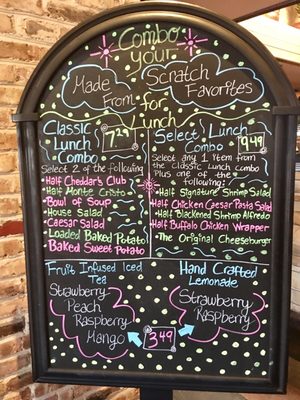 Combo
your
Made
From
Scratch
Favorites
for
Lunch
Classic
Lunch
Combo
7.29
Select 2 of the following
·Half Cheddar's Club
·Half Monte Cristo
·Bowl of Soup
·House Salad
·Caesar Salad
·Loaded Baked Potato
·Baked Sweet Potato
Select Lunch
Combo
9.49
Select any 1 Item from
the Classic Lunch Combo
Plus one of the
following:
·Half Signature Shrimp Salad
·Half Chicken Caesar Pasta Salad
·Half Blackened Shrimp Alfredo
·Half Buffalo Chicken Wrapper
·The Original Cheeseburger
Fruit Infused Iced
Tea
Strawberry
Peach
Raspberry
Mango
Hand Crafted
Lemonade
Strawberry
Raspberry
3.49